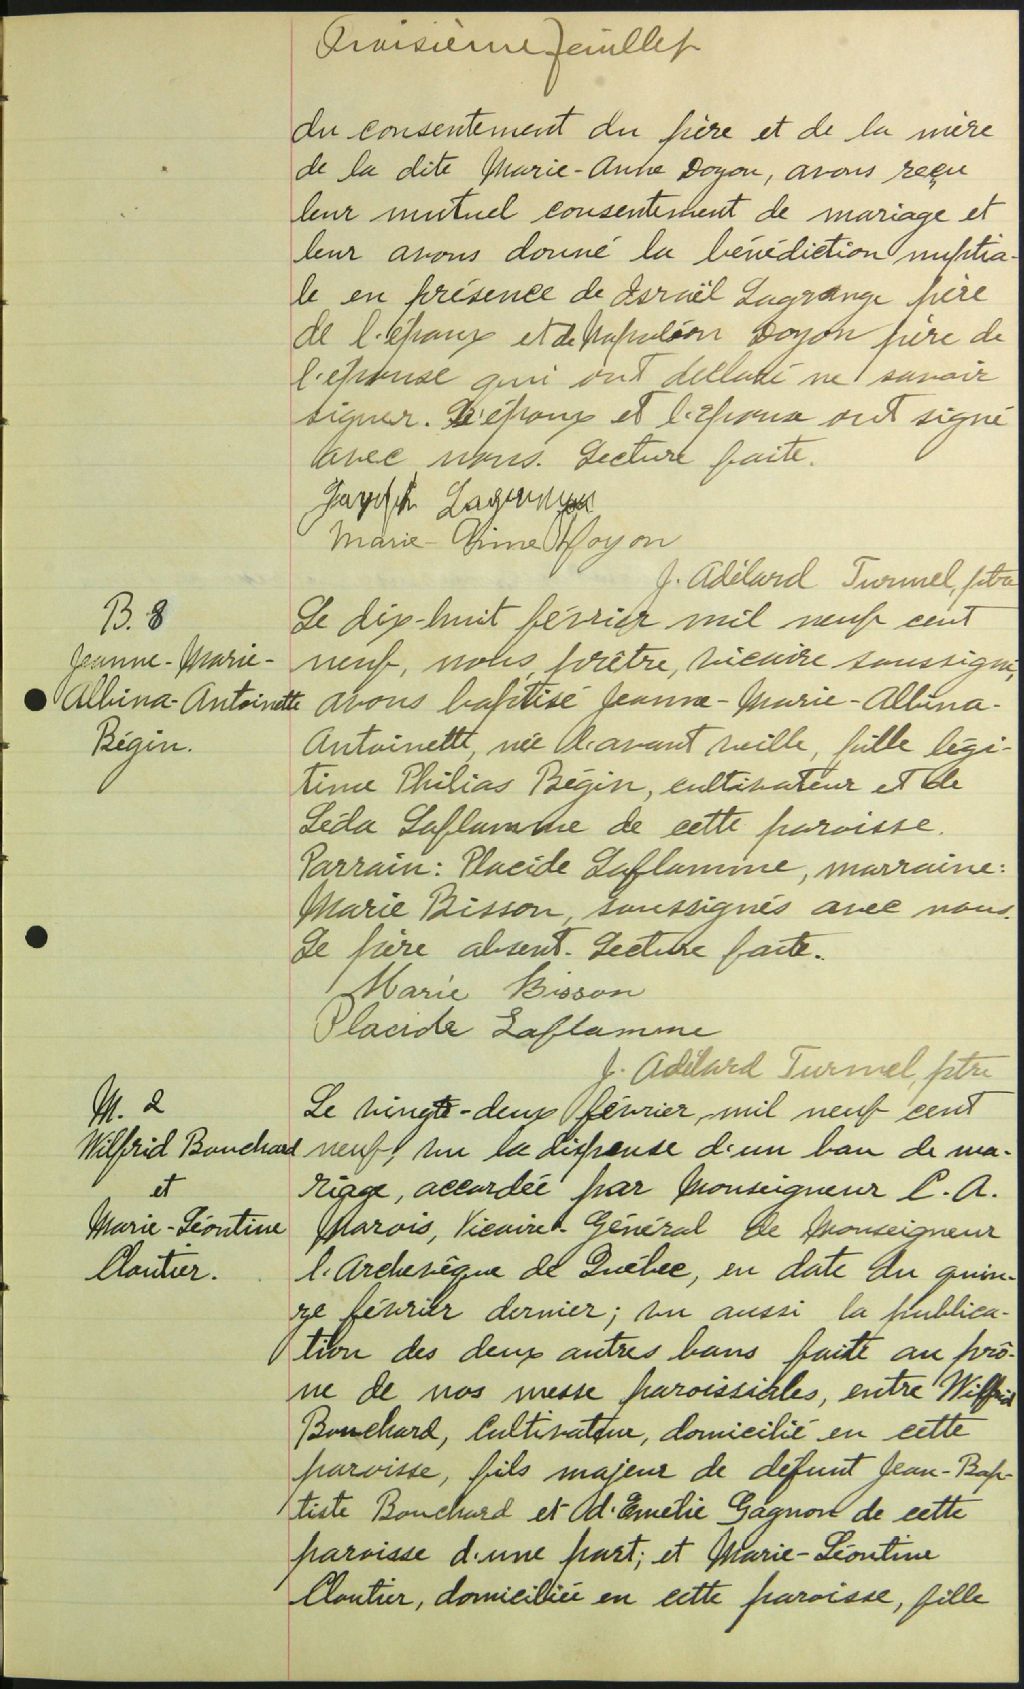 Troisième feuillet
du consentement du père et de la mère
de la dite Marie-Anne Doyon, avons reçu
leur mutuel consentement de mariage et
leur avons donné la bénédiction nuptia-
le en présence de Israël Lagrange père
de l'époux et de Napoléon Doyon père de
l'épouse qui ont déclaré ne savoir
signer. L'époux et l'épouse ont signé
avec nous. Lecture faite.
Joseph Lagrange
Marie-Anne Doyon
J. Adélard Turmel, ptre
B. 8
Jeanne-Marie-
Albina-Antoinette
Bégin.
Le dix-huit février mil neuf cent
neuf, nous, prêtre, vicaire soussigné,
avons baptisé Jeanne-Marie-Albina-
Antoinette, née d'avant veille, fille légi-
time Philias Bégin, cultivateur et de
Léda Laflamme de cette paroisse.
Parrain: Placide Laflamme, marraine:
Marie Bisson, soussignés avec nous.
Le père absent. Lecture faite.
Marie Bisson
Placide Laflamme
J. Adélard Turmel, ptre
M. 2
Wilfrid Bouchard
et
Marie-Léontine
Cloutier.
Le vingt-deux février, mil neuf cent
neuf, vu la dispense d'un ban de ma-
riage, accordée par Monseigneur C. A.
Marois, Vicaire-Général de Monseigneur
l'Archevêque de Québec, en date du quin-
ze février dernier; vu aussi la publica-
tion des deux autres bans faite au prô-
ne de nos messe paroissiales, entre Wilfrid
Bouchard, Cultivateur, domicilié en cette
paroisse, fils majeur de défunt Jean-Bap-
tiste Bouchard et d'Emélie Gagnon de cette
paroisse d'une part; et Marie-Léontine
Cloutier, domiciliée en cette paroisse, fille